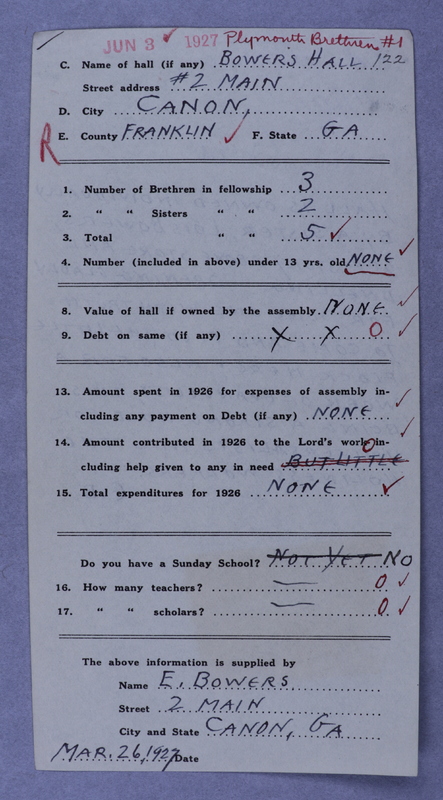 JUN 3 1927 Plymouth Brethren #1
C. Name of hall (if any) BOWERS HALL 122
Street address #2 MAIN
D. City CANON,
R E. County FRANKLIN F. State GA
1. Number of Brethren in fellowship 3
2. " " Sisters " " 2
3. Total " " 5
4. Number (included in above) under 13 yrs. old NONE
8. Value of hall if owned by the assembly. NONE
9. Debt on same (if any) X X 0
13. Amount spent in 1926 for expenses of assembly in-
cluding any payment on Debt (if any) NONE
14. Amount contributed in 1926 to the Lord's work in-
0
cluding help given to any in need BUT LITTLE
15. Total expenditures for 1926 NONE
Do you have a Sunday School? NOT YET NO
16. How many teachers? — 0
17. " " scholars? — 0
The above information is supplied by
Name E. BOWERS
Street 2 MAIN
City and State CANON, GA
MAR. 26, 1927 Date